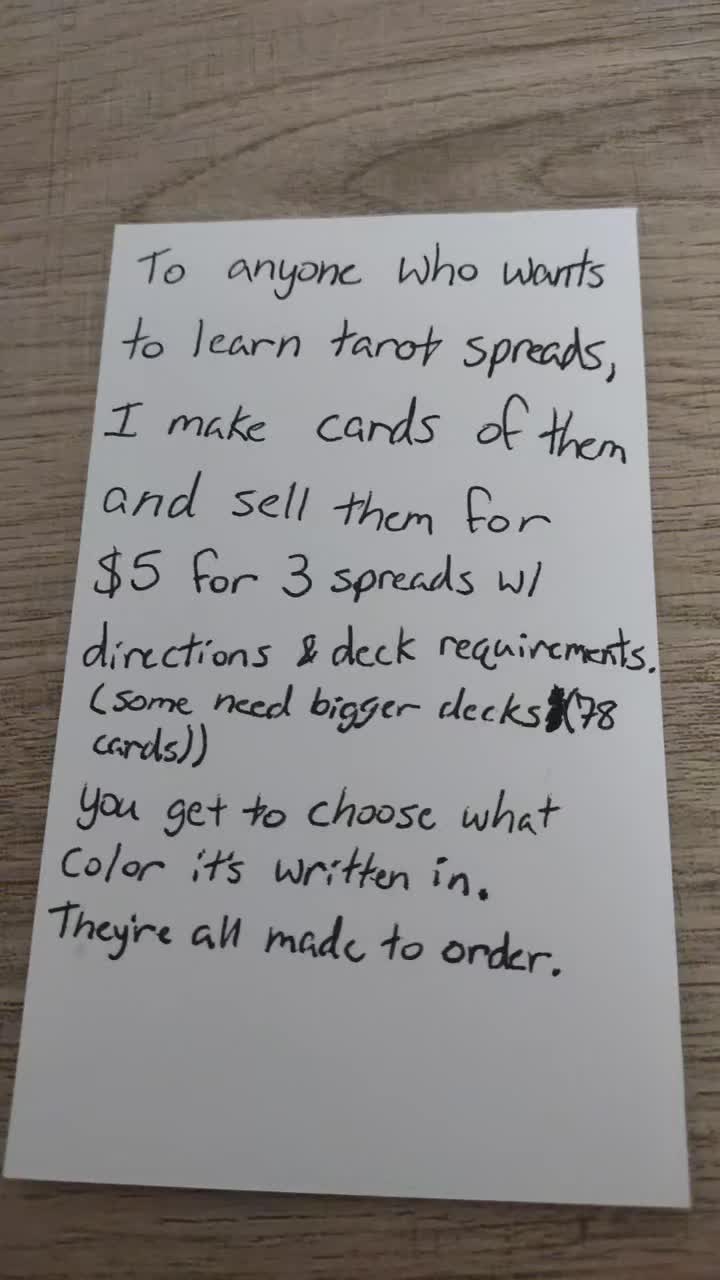 To anyone who wants
to learn tarot spreads,
I make cards of them
and sell them for
$5 for 3 spreads w/
directions & deck requirements.
(some need bigger decks (78
cards))
you get to choose what
color it's written in.
They're all made to order.